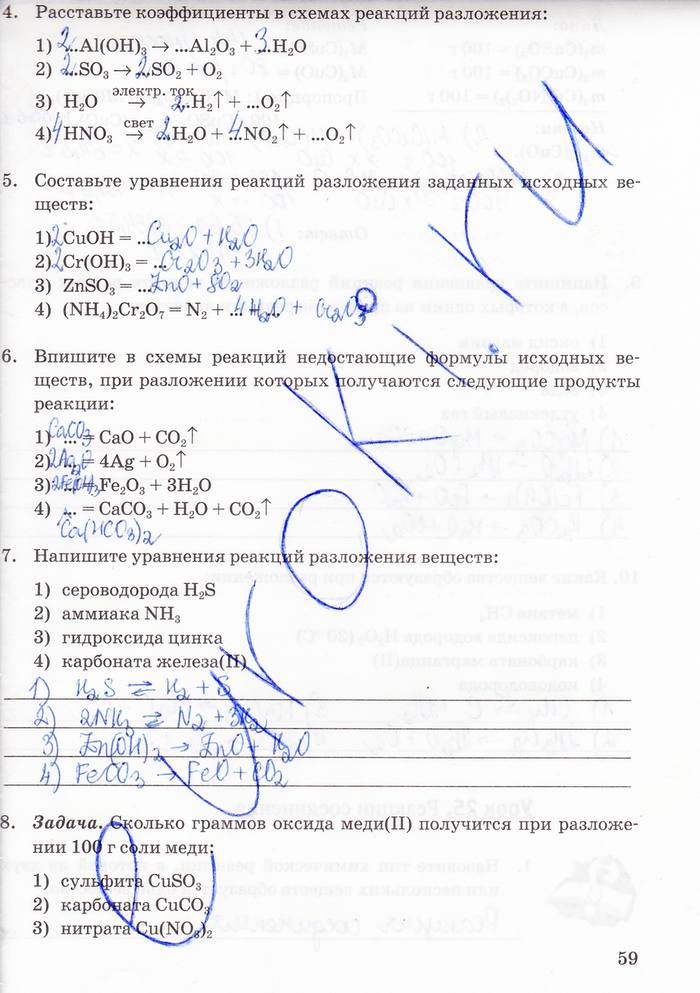 4. Расставьте коэффициенты в схемах реакций разложения:
1) 2...Al(OH)₃ → ...Al₂O₃ + 3...H₂O
2) 2...SO₃ → 2...SO₂ + O₂
электр. ток
3) H₂O → 2...H₂↑ + ...O₂↑
свет
4) 4HNO₃ → 2...H₂O + 4...NO₂↑ + ...O₂↑
5. Составьте уравнения реакций разложения заданных исходных ве-
ществ:
1) 2CuOH = ...Cu₂O + H₂O
2) 2Cr(OH)₃ = ...Cr₂O₃ + 3H₂O
3) ZnSO₃ = ...ZnO + SO₂
4) (NH₄)₂Cr₂O₇ = N₂ + ...4H₂O + Cr₂O₃
6. Впишите в схемы реакций недостающие формулы исходных ве-
ществ, при разложении которых получаются следующие продукты
реакции:
1) CaCO₃ ... = CaO + CO₂↑
2) 2Ag₂O ... = 4Ag + O₂↑
3) 2Fe(OH)₃ ... = Fe₂O₃ + 3H₂O
4) ... = CaCO₃ + H₂O + CO₂↑
Ca(HCO₃)₂
7. Напишите уравнения реакций разложения веществ:
1) сероводорода H₂S
2) аммиака NH₃
3) гидроксида цинка
4) карбоната железа(II)
1) H₂S ⇄ H₂ + S
2) 2NH₃ ⇄ N₂ + 3H₂
3) Zn(OH)₂ → ZnO + H₂O
4) FeCO₃ → FeO + CO₂
8. Задача. Сколько граммов оксида меди(II) получится при разложе-
нии 100 г соли меди:
1) сульфита CuSO₃
2) карбоната CuCO₃
3) нитрата Cu(NO₃)₂
59